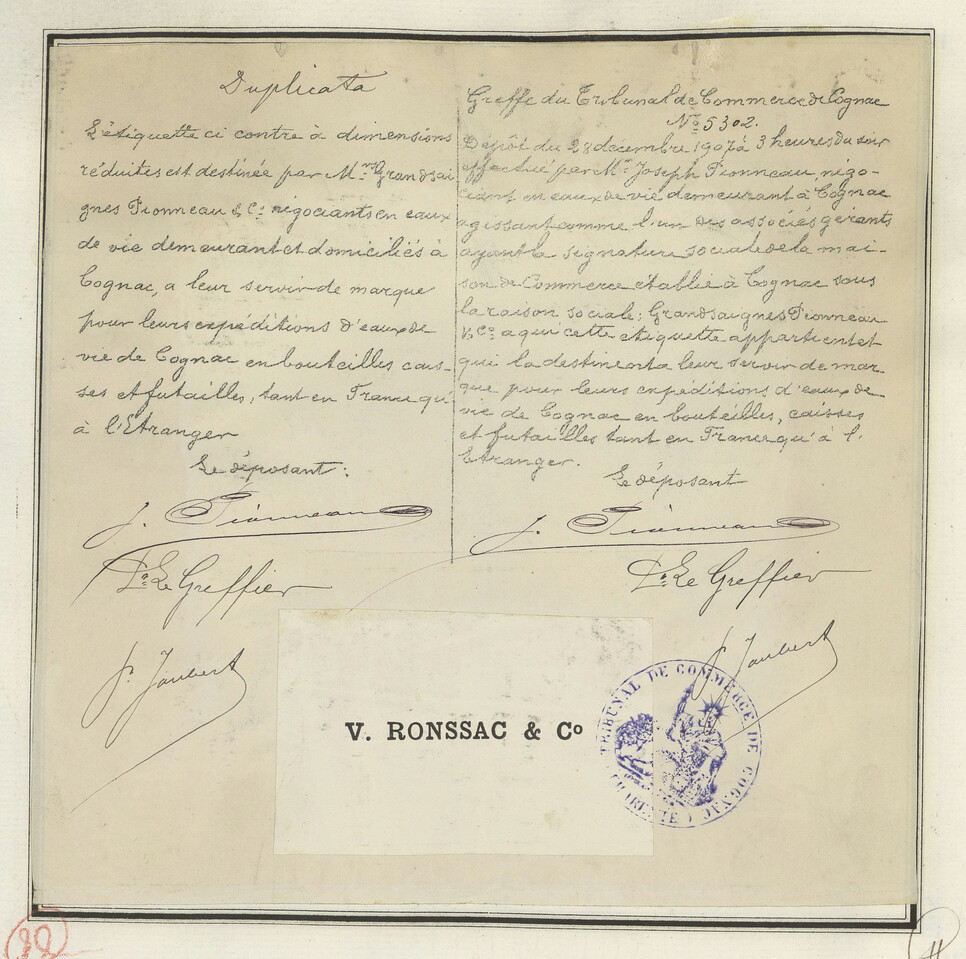 Duplicata
L'étiquette ci contre à dimensions
réduites est destinée par Mrs Grandsai
gnes Pionneau & Cie négociants en eaux
de vie demeurant et domiciliés à
Cognac, a leur servir de marque
pour leurs expéditions d'eaux de
vie de Cognac en bouteilles cais-
ses et futailles, tant en France qu'
à l'Etranger
Le déposant :
J. Pionneau
Pr Le Greffier
P. Jaubert
Greffe du Tribunal de Commerce de Cognac
No 5302.
Dépôt du 28 décembre 1907 à 3 heures du soir
effectué par Mr Joseph Pionneau, négo-
ciant en eaux de vie demeurant à Cognac
agissant comme l'un des associés gérants
ayant la signature sociale de la mai-
son de Commerce établie à Cognac sous
la raison sociale; Grandsaignes Pionneau
& Co a qui cette etiquette appartient et
qui la destinent a leur servir de mar-
que pour leurs expéditions d'eaux de
vie de Cognac en bouteilles, caisses
et futailles tant en France qu'à l'
Etranger.
Le déposant
J. Pionneau
Pr Le Greffier
P. Jaubert
V. RONSSAC & Co
TRIBUNAL DE COMMERCE DE COGNAC
(CHARENTE)
88